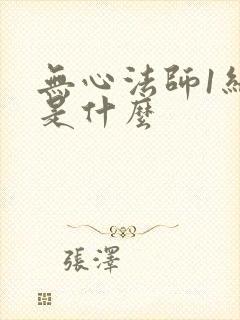 無心法師1
是什麼
張澤